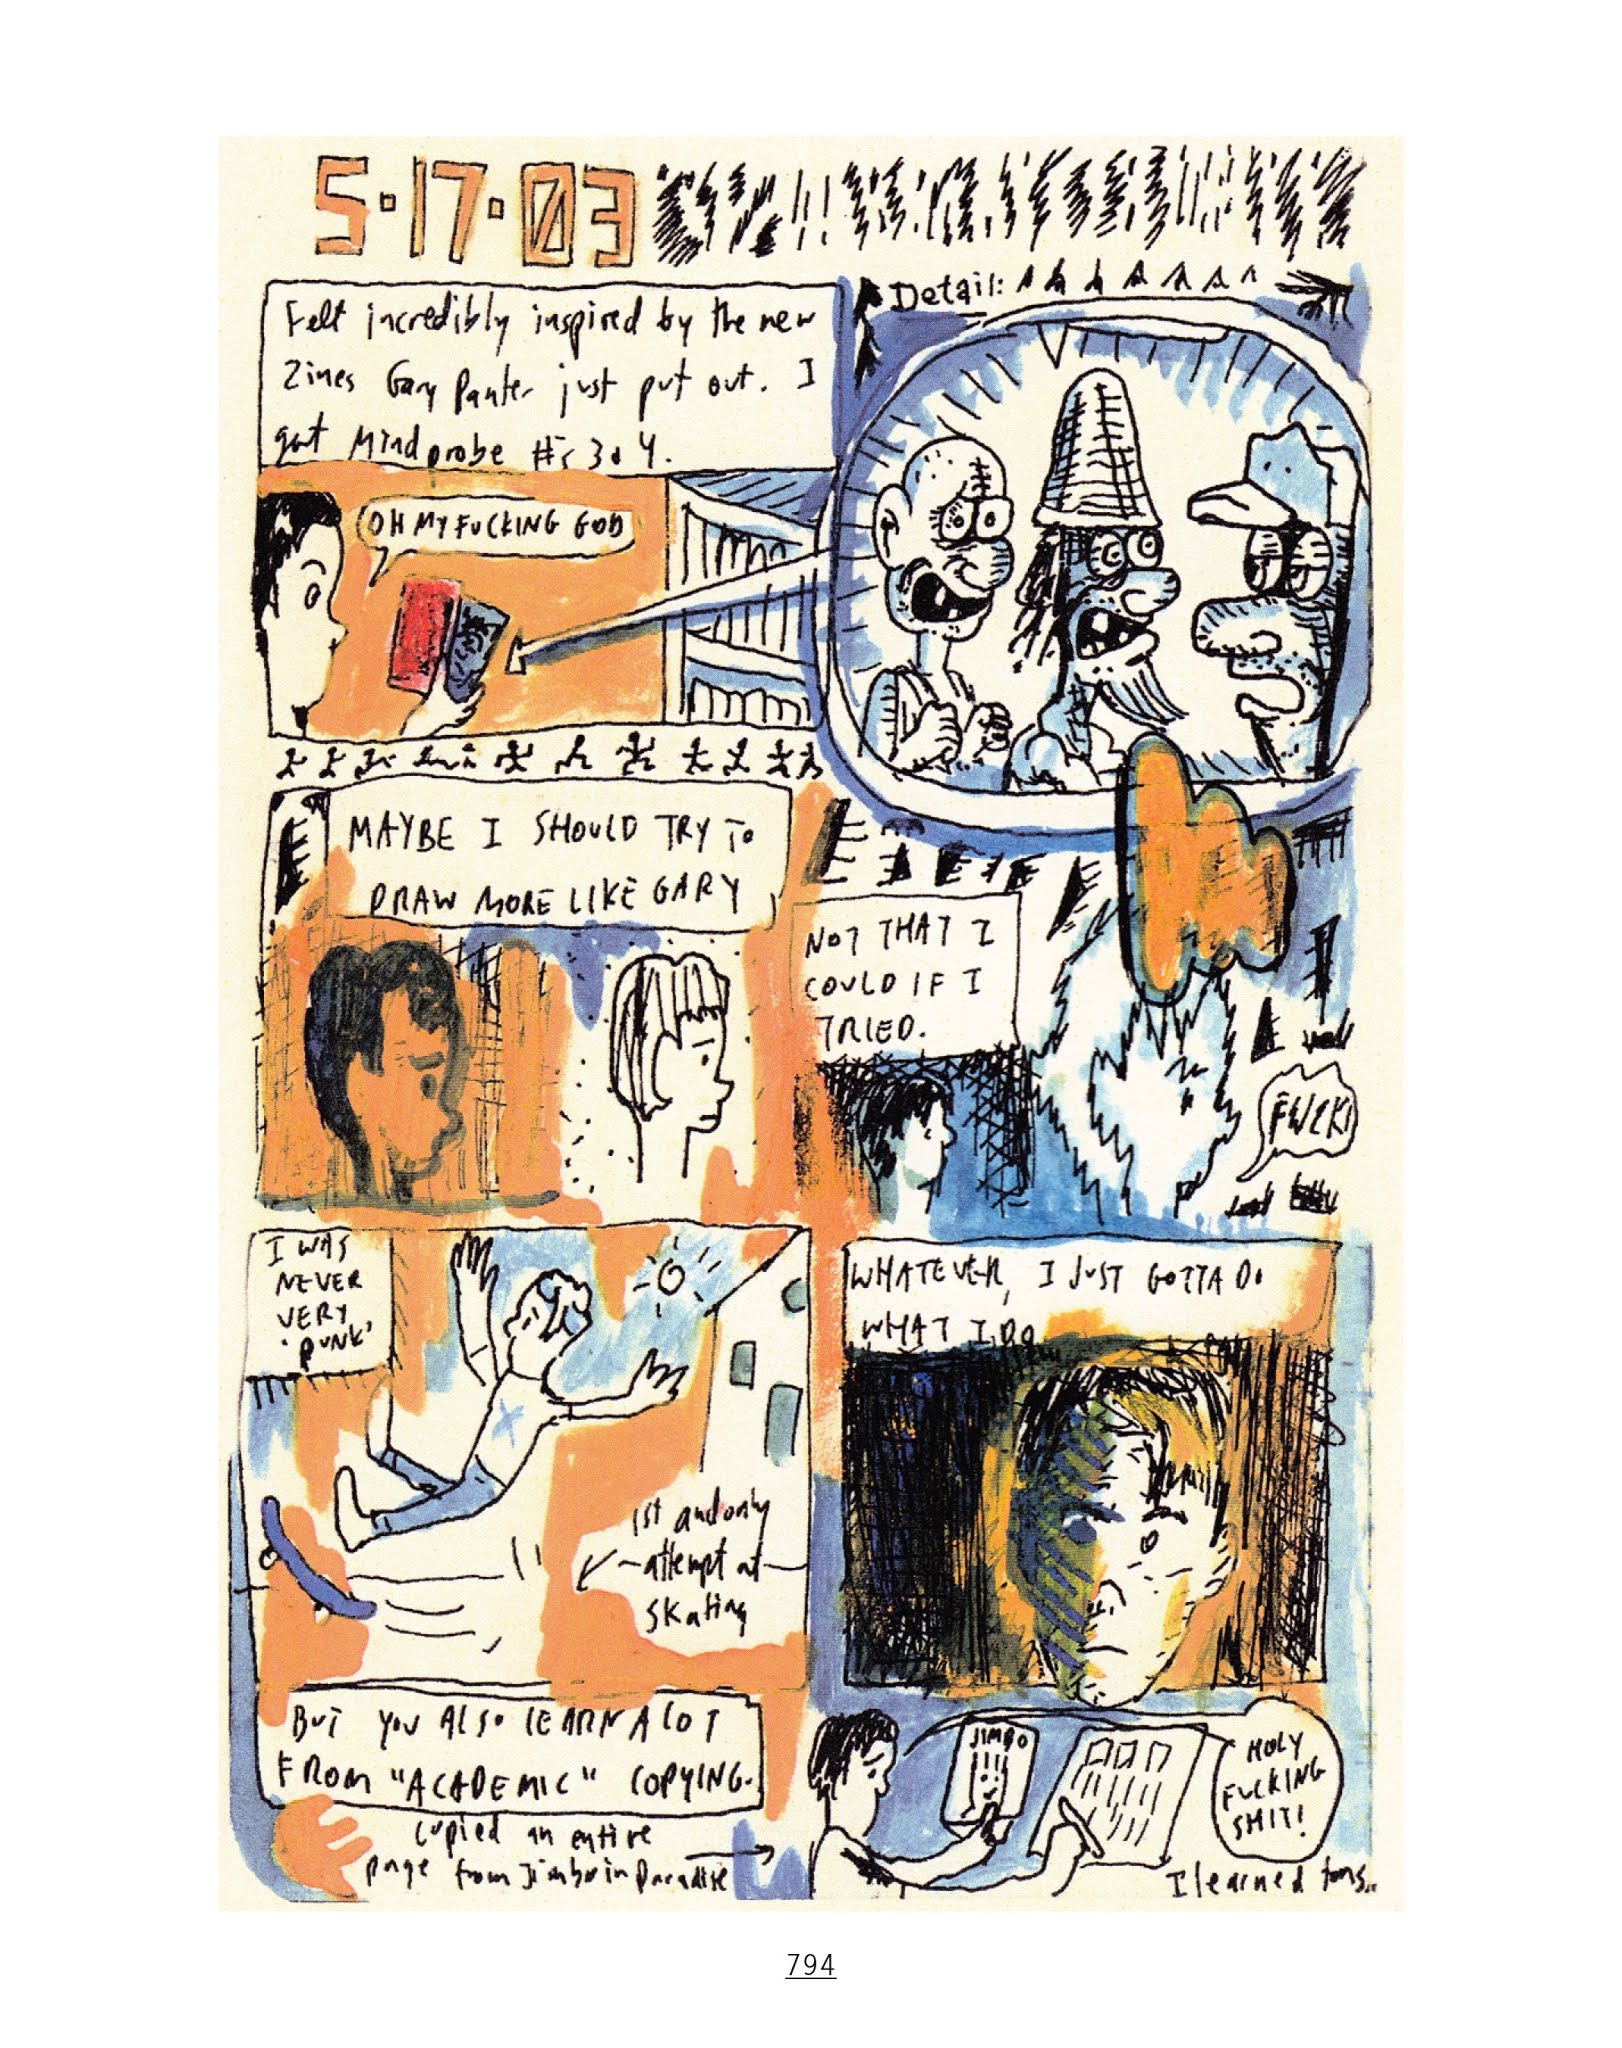 5·17·03
Felt incredibly inspired by the new
Zines Gary Panter just put out. I
got Mindprobe #s 3 & 4.
Detail:
OH MY FUCKING GOD
MAYBE I SHOULD TRY TO
DRAW MORE LIKE GARY
NOT THAT I
COULD IF I
TRIED.
FUCK!
I WAS
NEVER
VERY
'PUNK'
1st and only
attempt at
skating
WHATEVER, I JUST GOTTA DO
WHAT I DO
BUT YOU ALSO LEARN A LOT
FROM "ACADEMIC" COPYING.
copied an entire
page from Jimbo in Paradise
JIMBO
HOLY
FUCKING
SHIT!
I learned tons..
794